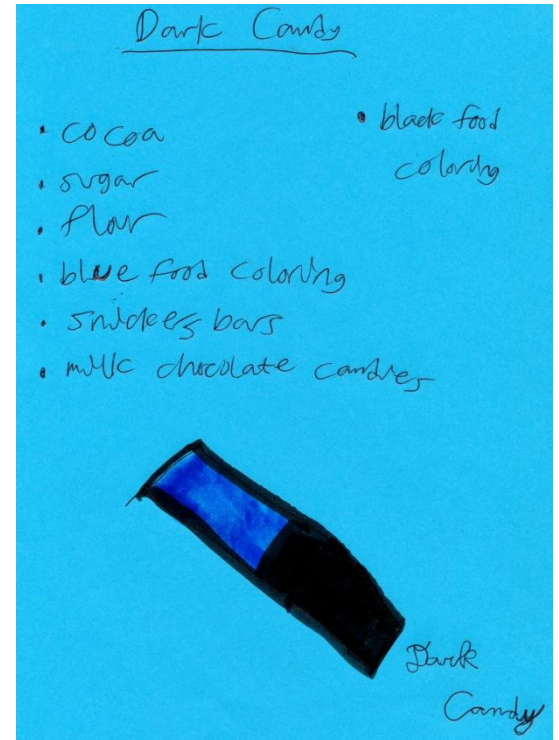 Dark Candy
• cocoa
• sugar
• flour
• blue food coloring
• snickers bars
• milk chocolate candies
• black food
coloring
Dark
Candy